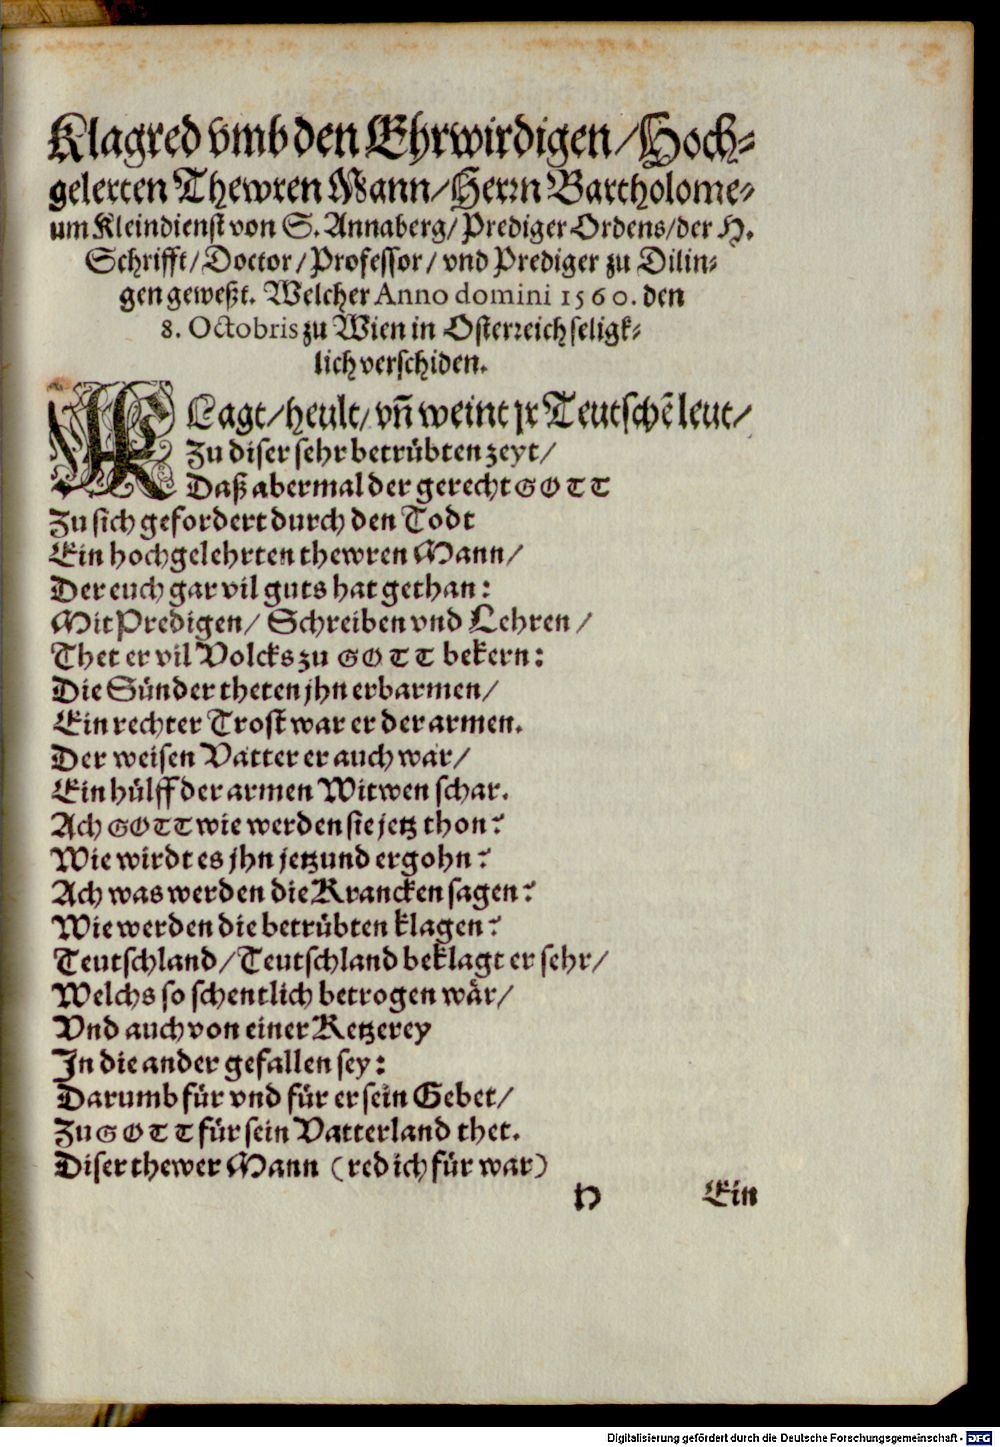 Klagred vmb den Ehrwirdigen/Hoch-
gelerten Thewren Mann/Herrn Bartholome-
um Kleindienst von S. Annaberg/Prediger Ordens/der H.
Schrifft/Doctor/Professor/vnd Prediger zu Dilin-
gen geweßt. Welcher Anno domini 1560. den
8. Octobris zu Wien in Osterreich seligk-
lich verschiden.
KLagt/heult/vñ weint jr Teutschẽ leut/
Zu diser sehr betrübten zeyt/
Daß abermal der gerecht GOTT
Zu sich gefordert durch den Todt
Ein hochgelehrten thewren Mann/
Der euch gar vil guts hat gethan:
Mit Predigen/ Schreiben vnd Lehren/
Thet er vil Volcks zu GOTT bekern:
Die Sünder theten jhn erbarmen/
Ein rechter Trost war er der armen.
Der weisen Vatter er auch war/
Ein hülff der armen Witwen schar.
Ach GOTT wie werden sie jetz thon?
Wie wirdt es jhn jetzund ergohn?
Ach was werden die Krancken sagen?
Wie werden die betrübten klagen?
Teutschland/Teutschland beklagt er sehr/
Welchs so schentlich betrogen wär/
Vnd auch von einer Ketzerey
In die ander gefallen sey:
Darumb für vnd für er sein Gebet/
Zu GOTT für sein Vatterland thet.
Diser thewer Mann (red ich für war)
Ein
Digitalisierung gefördert durch die Deutsche Forschungsgemeinschaft - DFG